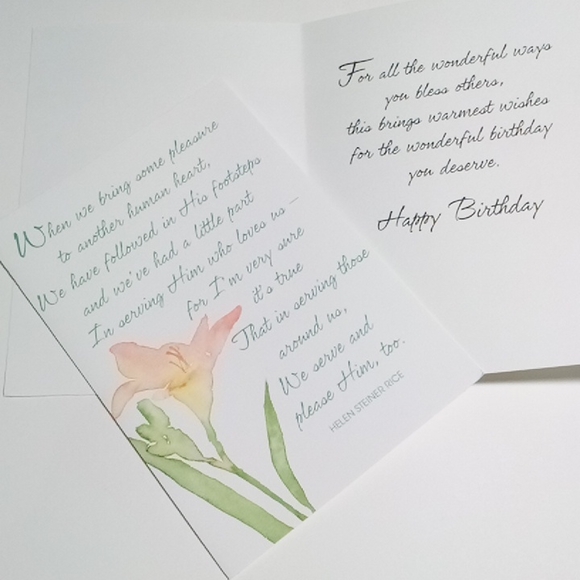 When we bring some pleasure
to another human heart,
We have followed in His footsteps
and we've had a little part
In serving Him who loves us –
for I'm very sure
it's true
That in serving those
around us,
We serve and
please Him, too.
HELEN STEINER RICE
For all the wonderful ways
you bless others,
this brings warmest wishes
for the wonderful birthday
you deserve.
Happy Birthday